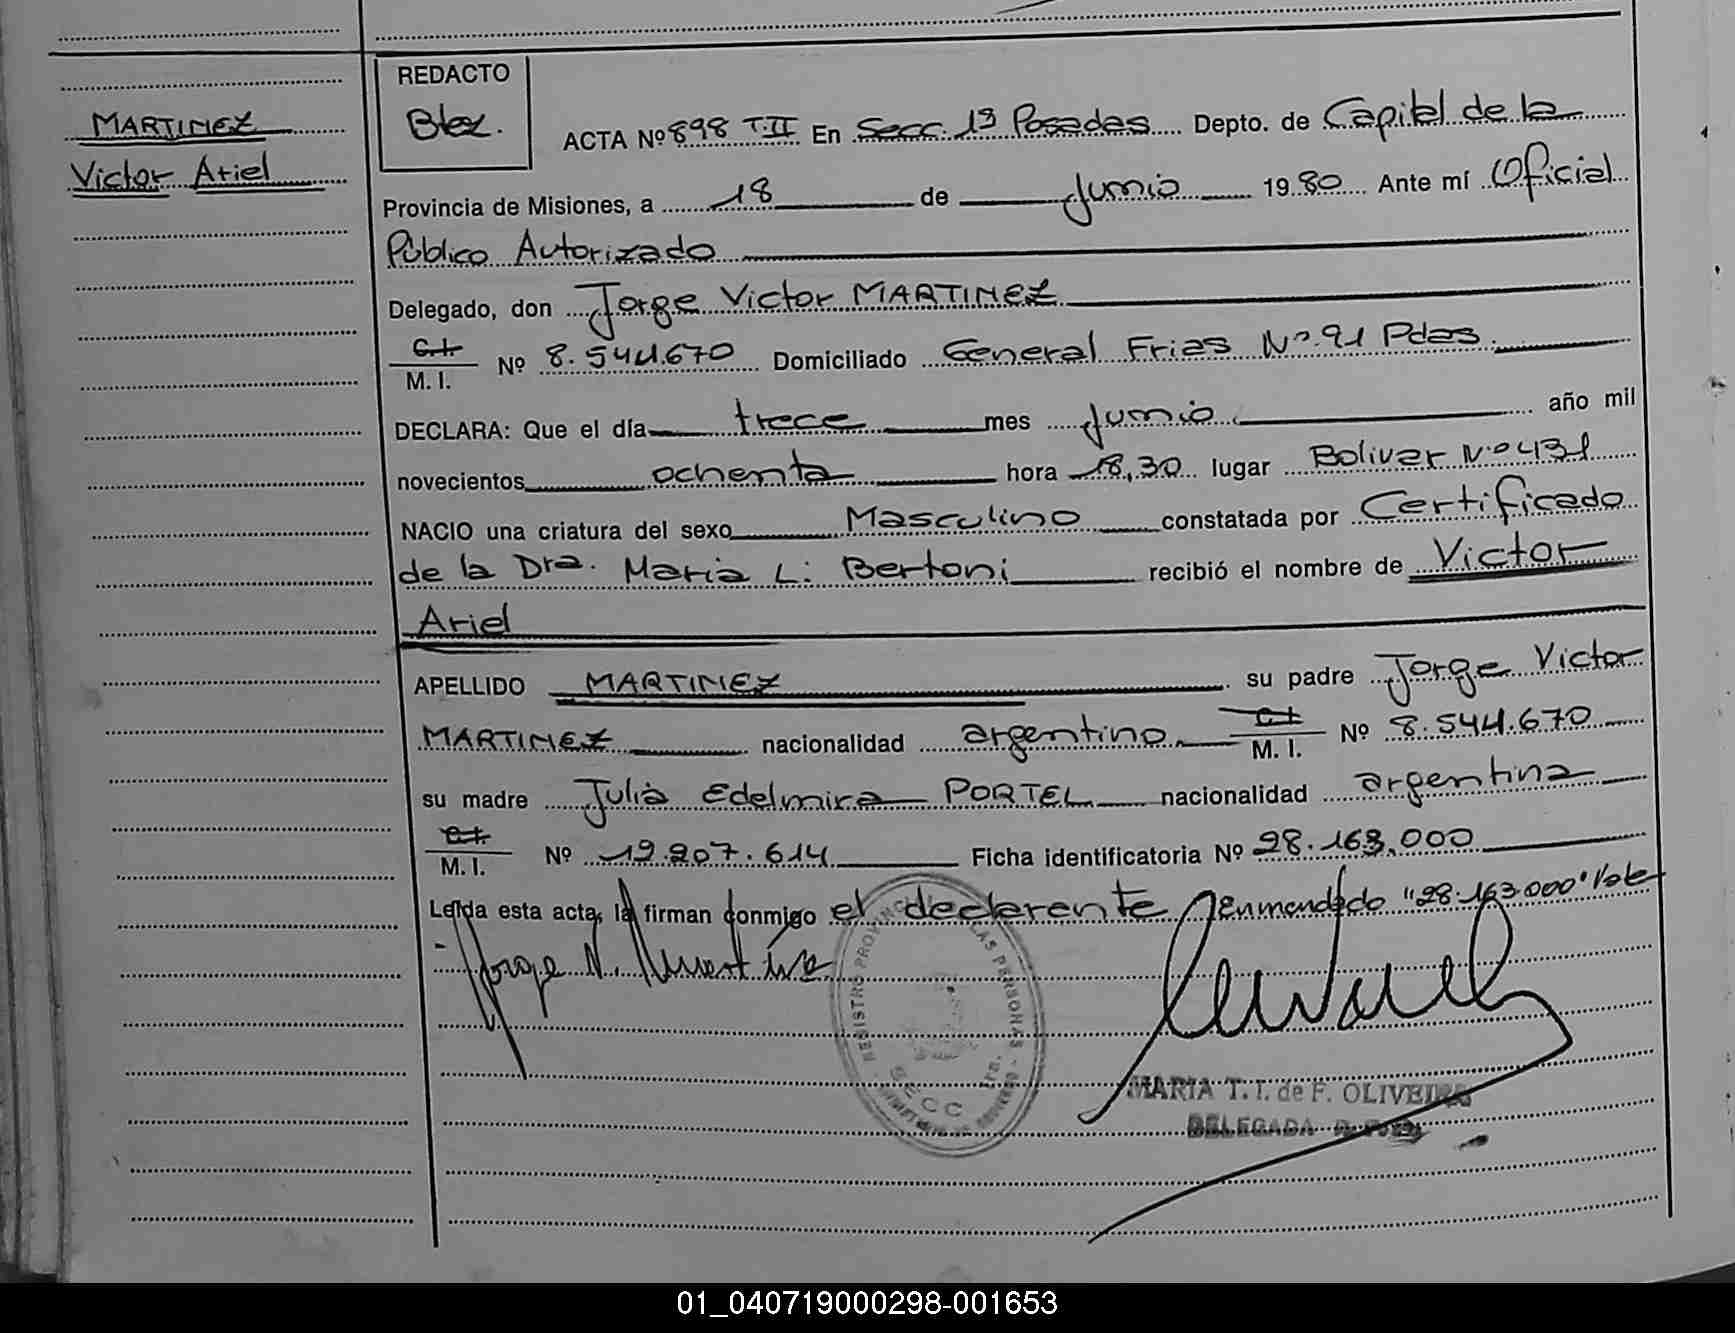 MARTINEZ
Victor Ariel
REDACTO
Blez.
ACTA Nº 898 T.II En Secc. 1ª Posadas Depto. de Capital de la
Provincia de Misiones, a 18 de Junio 1980 Ante mí Oficial
Público Autorizado
Delegado, don Jorge Victor MARTINEZ
C.I.
M. I. Nº 8.544.670 Domiciliado General Frias Nº 91 Pdas
DECLARA: Que el día trece mes Junio año mil
novecientos ochenta hora 18,30 lugar Bolivar Nº 431
NACIO una criatura del sexo Masculino constatada por Certificado
de la Dra. Maria L. Bertoni recibió el nombre de Victor
Ariel
APELLIDO MARTINEZ su padre Jorge Victor
MARTINEZ nacionalidad argentino C.I. M. I. Nº 8.544.670
su madre Julia Edelmira PORTEL nacionalidad argentina
C.I.
M. I. Nº 19.207.614 Ficha identificatoria Nº 28.163.000
Leída esta acta, la firman conmigo el declarente Enmendado "28.163.000" Vale
Jorge V. Martinez
REGISTRO PROVINCIAL LAS PERSONAS
SECC 1ra.
MARIA T. I. de F. OLIVEIRA
DELEGADA
01_040719000298-001653